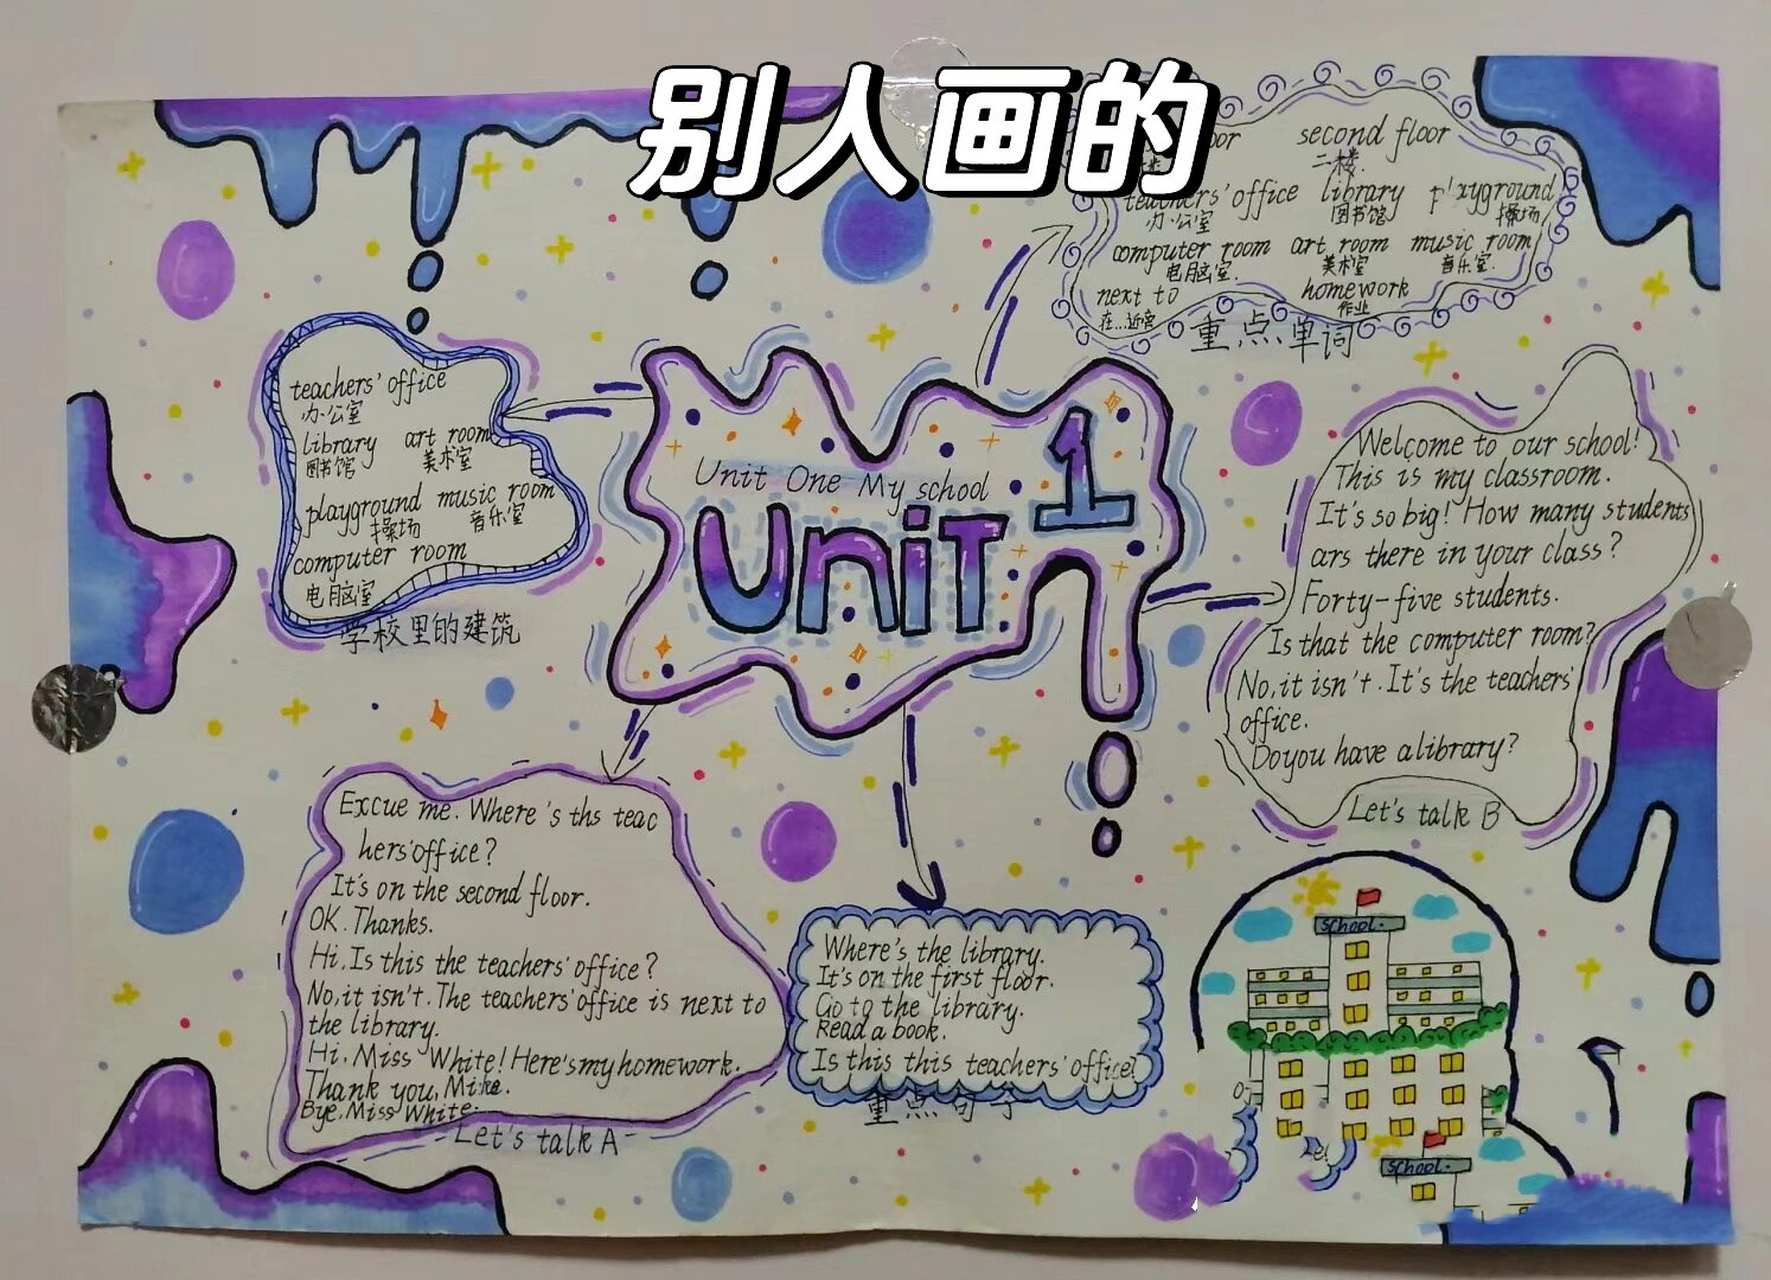 别人画的
second floor
二楼
office library
办公室 图书馆 操场
computer room art room music room
电脑室. 美术室 音乐室.
next to homework
在...近旁 作业
重点单词
teachers' office
办公室
library art room
图书馆 美术室
playground music room
操场 音乐室
computer room
电脑室
学校里的建筑
Unit One My school
UniT 1
Welcome to our school!
This is my classroom.
It's so big! How many students
ars there in your class?
Forty-five students.
Is that the computer room?
No,it isn't. It's the teachers'
office.
Doyou have alibrary?
Let's talk B
Excue me. Where's ths teac
hers'office?
It's on the second floor.
OK. Thanks.
Hi. Is this the teachers' office?
No,it isn't. The teachers'office is next to
the library.
Hi. Miss White! Here'smyhomework.
Thank you, Mike.
Bye. Miss White.
Let's talk A
Where's the library.
It's on the first floor.
Go to the library.
Read a book.
Is this this teachers' office?
重点句子
School.
School.